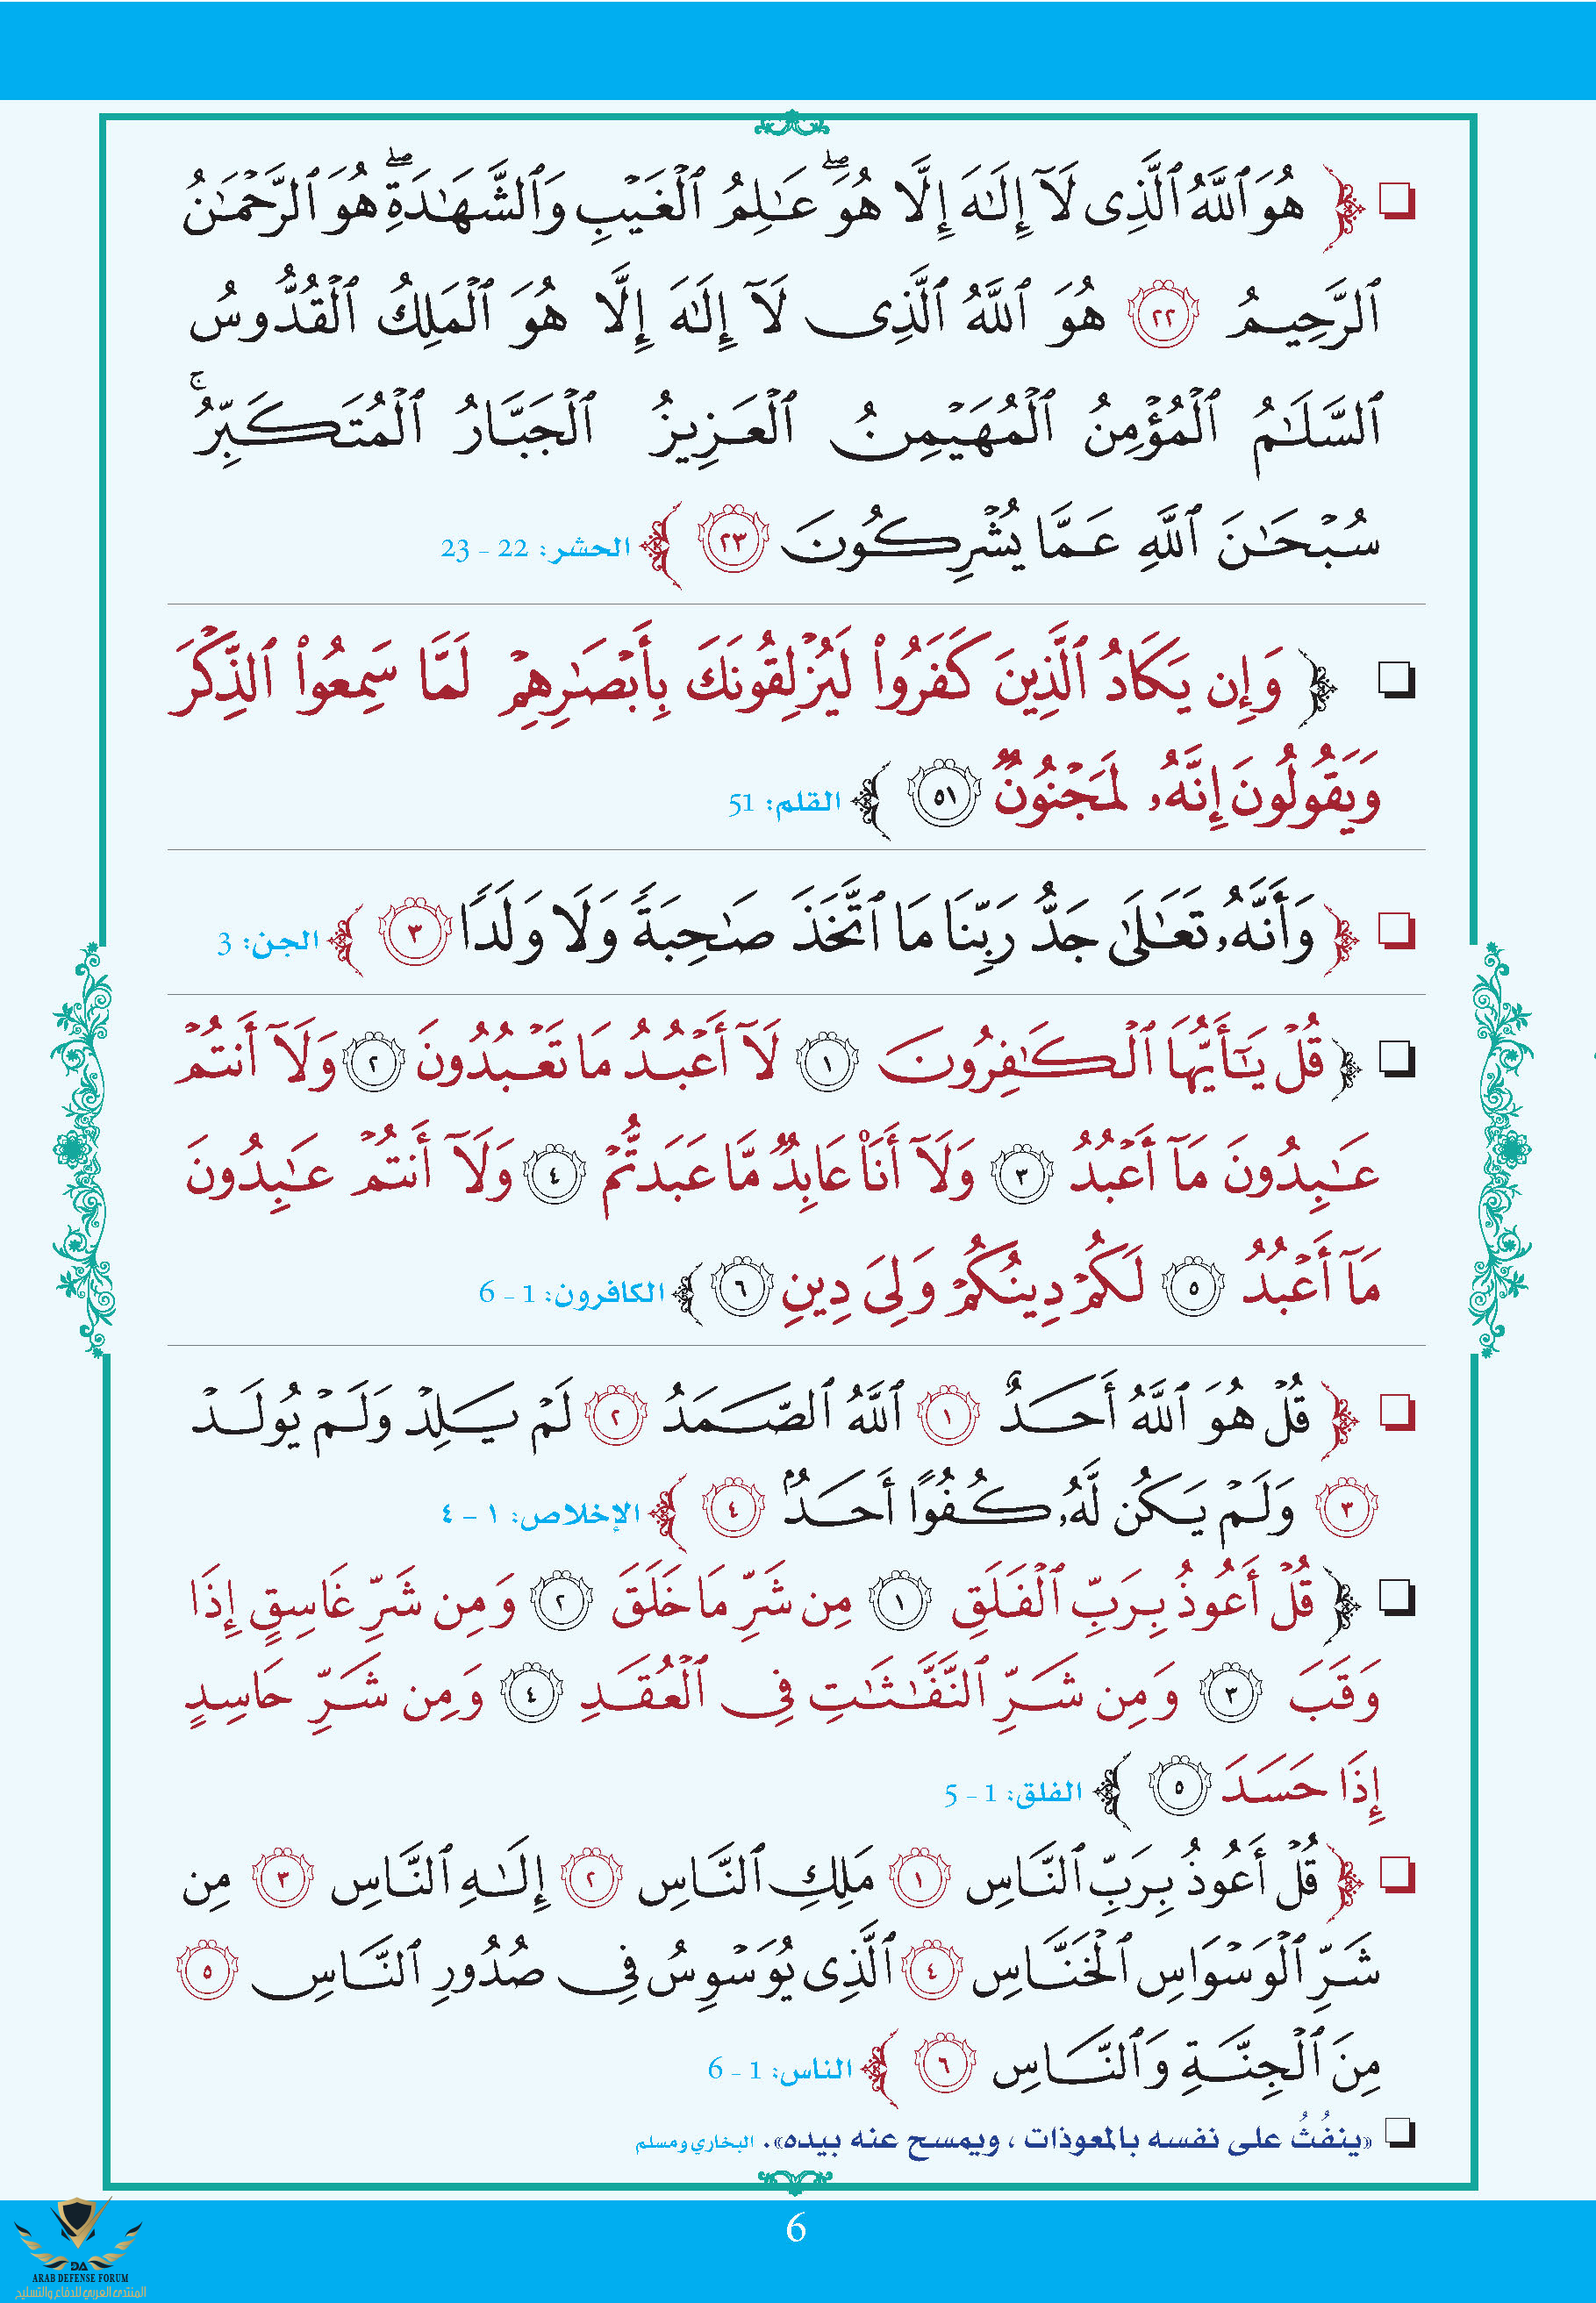 ❏ ﴿ هُوَ ٱللَّهُ ٱلَّذِى لَآ إِلَٰهَ إِلَّا هُوَ ۖ عَٰلِمُ ٱلْغَيْبِ وَٱلشَّهَٰدَةِ ۖ هُوَ ٱلرَّحْمَٰنُ
ٱلرَّحِيمُ ٢٢ هُوَ ٱللَّهُ ٱلَّذِى لَآ إِلَٰهَ إِلَّا هُوَ ٱلْمَلِكُ ٱلْقُدُّوسُ
ٱلسَّلَٰمُ ٱلْمُؤْمِنُ ٱلْمُهَيْمِنُ ٱلْعَزِيزُ ٱلْجَبَّارُ ٱلْمُتَكَبِّرُ ۚ
سُبْحَٰنَ ٱللَّهِ عَمَّا يُشْرِكُونَ ٢٣ ﴾ الحشر: 22 - 23
❏ ﴿ وَإِن يَكَادُ ٱلَّذِينَ كَفَرُوا۟ لَيُزْلِقُونَكَ بِأَبْصَٰرِهِمْ لَمَّا سَمِعُوا۟ ٱلذِّكْرَ
وَيَقُولُونَ إِنَّهُۥ لَمَجْنُونٌ ٥١ ﴾ القلم: 51
❏ ﴿ وَأَنَّهُۥ تَعَٰلَىٰ جَدُّ رَبِّنَا مَا ٱتَّخَذَ صَٰحِبَةً وَلَا وَلَدًا ٣ ﴾ الجن: 3
❏ ﴿ قُلْ يَٰٓأَيُّهَا ٱلْكَٰفِرُونَ ١ لَآ أَعْبُدُ مَا تَعْبُدُونَ ٢ وَلَآ أَنتُمْ
عَٰبِدُونَ مَآ أَعْبُدُ ٣ وَلَآ أَنَا۠ عَابِدٌ مَّا عَبَدتُّمْ ٤ وَلَآ أَنتُمْ عَٰبِدُونَ
مَآ أَعْبُدُ ٥ لَكُمْ دِينُكُمْ وَلِىَ دِينِ ٦ ﴾ الكافرون: 1 - 6
❏ ﴿ قُلْ هُوَ ٱللَّهُ أَحَدٌ ١ ٱللَّهُ ٱلصَّمَدُ ٢ لَمْ يَلِدْ وَلَمْ يُولَدْ
٣ وَلَمْ يَكُن لَّهُۥ كُفُوًا أَحَدٌۢ ٤ ﴾ الإخلاص: ١ - ٤
❏ ﴿ قُلْ أَعُوذُ بِرَبِّ ٱلْفَلَقِ ١ مِن شَرِّ مَا خَلَقَ ٢ وَمِن شَرِّ غَاسِقٍ إِذَا
وَقَبَ ٣ وَمِن شَرِّ ٱلنَّفَّٰثَٰتِ فِى ٱلْعُقَدِ ٤ وَمِن شَرِّ حَاسِدٍ
إِذَا حَسَدَ ٥ ﴾ الفلق: 1 - 5
❏ ﴿ قُلْ أَعُوذُ بِرَبِّ ٱلنَّاسِ ١ مَلِكِ ٱلنَّاسِ ٢ إِلَٰهِ ٱلنَّاسِ ٣ مِن
شَرِّ ٱلْوَسْوَاسِ ٱلْخَنَّاسِ ٤ ٱلَّذِى يُوَسْوِسُ فِى صُدُورِ ٱلنَّاسِ ٥
مِنَ ٱلْجِنَّةِ وَٱلنَّاسِ ٦ ﴾ الناس: 1 - 6
❏ «ينفُثُ على نفسه بالمعوذات ، ويمسح عنه بيده». البخاري ومسلم
6
DA
ARAB DEFENSE FORUM
المنتدى العربي للدفاع والتسليح